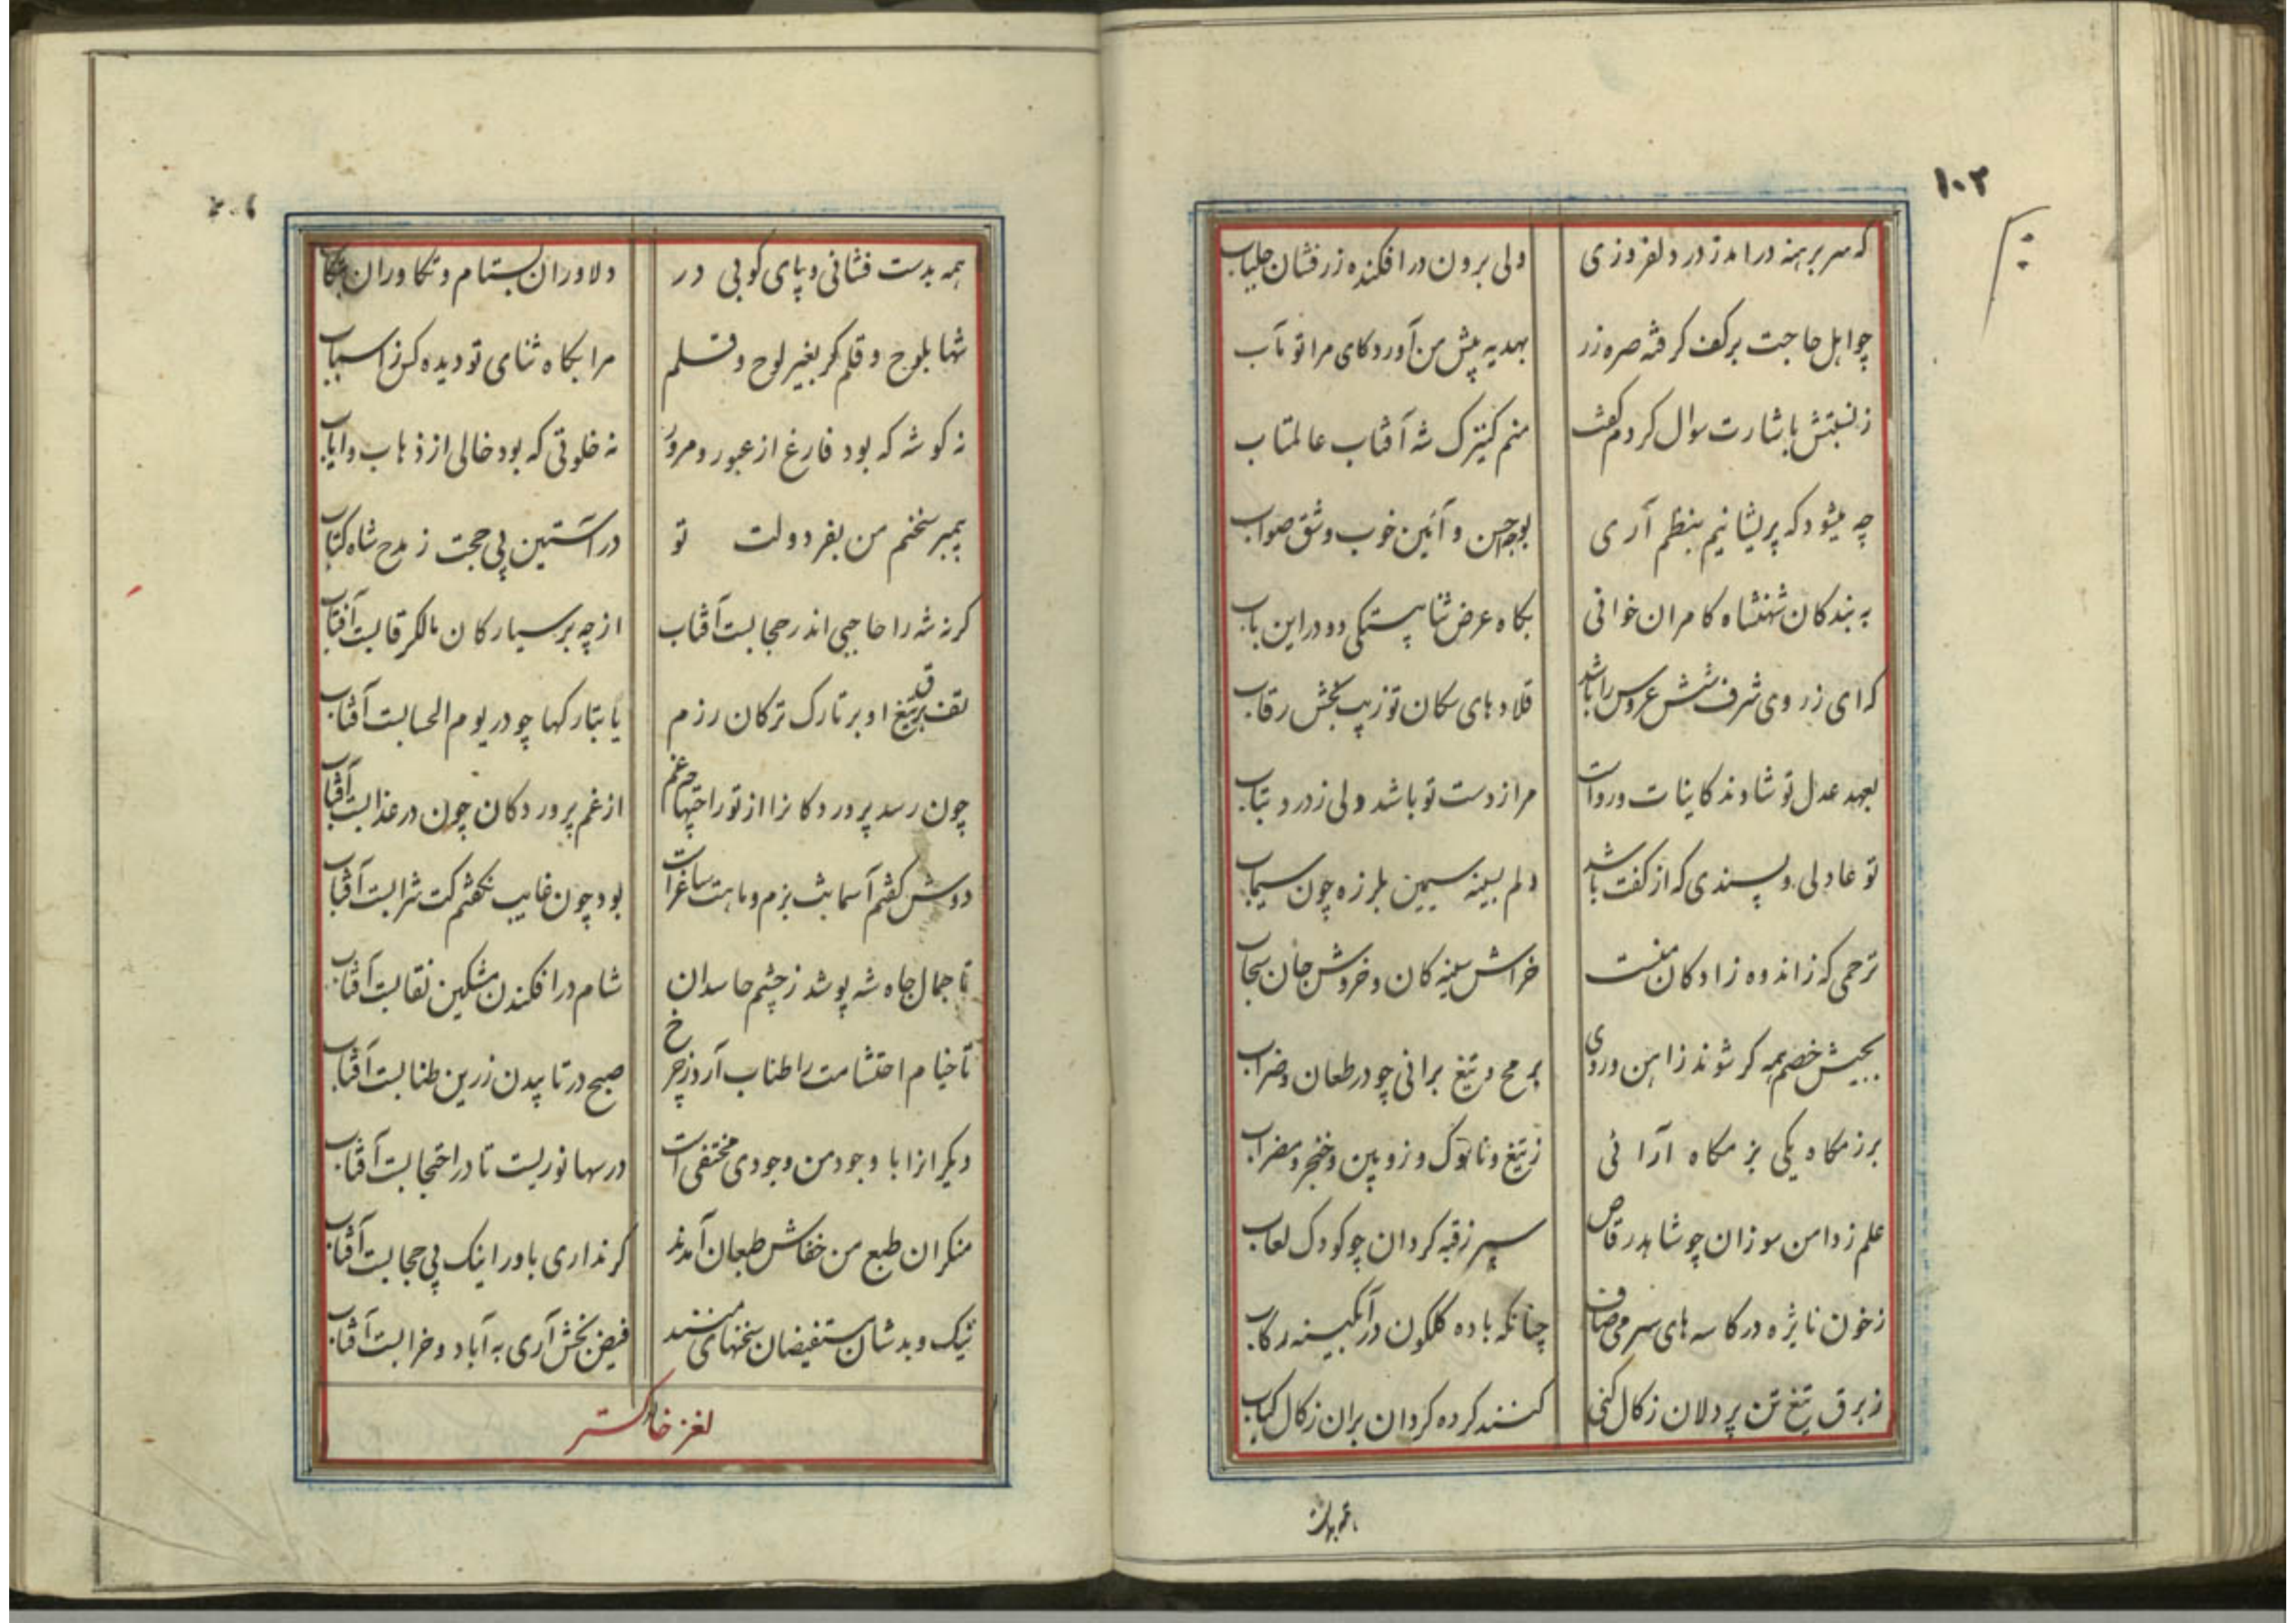 ۱۰۲
که سر برهنه درامد ز در دلفروزی ولی برون در افکنده زرفشان جلباب
چو اهل حاجت برکف کرفته صره زر بهدیه پیش من آورد کای مرا تو مآب
ز نسبتش باشارت سوال کردم گفت منم کنیزک شه آفتاب عالمتاب
چه میشود که پریشانیم بنظم آری بوجه حسن و آئین خوب و شق صواب
به بندکان شهنشاه کامران خوانی بکاه عرض ثنا بیتکی دو در این باب
که ای ز روی شرف شش عروس را باشد قلادهای سکان تو زیب بخش رقاب
بعهد عدل تو شادند کاینات و رواست مرا ز دست تو باشد دلی ز درد بتاب
تو عادلی و پسندی که از کفت باشد دلم بسینه سیمین بلرزه چون سیماب
ترحمی که ز اندوه زادکان منست خراش سینه کان و خروش جان سحاب
بجیش خصم همه کر شوند ز اهن و روی برمح و تیغ برانی چو در طعان و ضراب
برزمکاه یکی بزمکاه آرائی ز تیغ و ناوک و زوپین و خنجر و مضراب
علم ز دامن سوزان چو شاهد رقاص سپر ز قبه کردان چو کودک لعاب
ز خون نایژه در کاسه های سر می صاف چنانکه باده کلکون در آبکینه رکاب
ز برق تیغ تن پردلان زکال کنی کنند کرده کردان بران زکال کباب
همه بدست
همه بدست فشانی و پای کوبی در دلاوران بستام و تکاوران
شها بلوح و قلم کر بغیر لوح و قلم مرا بکاه ثنای تو دیده کس ز اسباب
نه کوشه که بود فارغ از عبور و مرور نه خلوتی که بود خالی از ذهاب و ایاب
پیمبر سخنم من بفر دولت تو در آستین پی حجت ز مدح شاه کتاب
کرنه شه را حاجبی اندر حجابست آفتاب از چه بر سیارکان مالک رقابست آفتاب
تف برق تیغ او بر تارک ترکان رزم یا بتارکها چو در یوم الحسابست آفتاب
چون رسد پروردکانرا از تو راحتها چه غم از غم پروردکان چون در عذابست آفتاب
دوش گفتم آسمانت بزم و ماهت ساغر است بود چون غایب نگفتم کت شرابست آفتاب
تا جمال جاه شه پوشد ز چشم حاسدان شام در افکندن مشکین نقابست آفتاب
تا خیام احتشامت را طناب آرد ز چرخ صبح در تابیدن زرین طنابست آفتاب
دیکرانرا با وجود من وجودی مختفی است در سها نوریست تا در احتجابست آفتاب
منکران طبع من خفاش طبعان آمدند کر نداری باور اینک بی حجابست آفتاب
نیک و بدشان مستفیضان سخنهای منند فیض بخش آری به آباد و خرابست آفتاب
لغز خاکستر